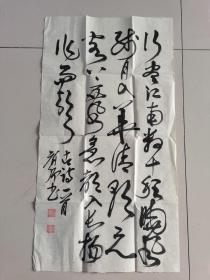 行尽江南数十程晓风
残月入華清朝元
阁上西风急都入长杨
作雨声
古诗一首
书